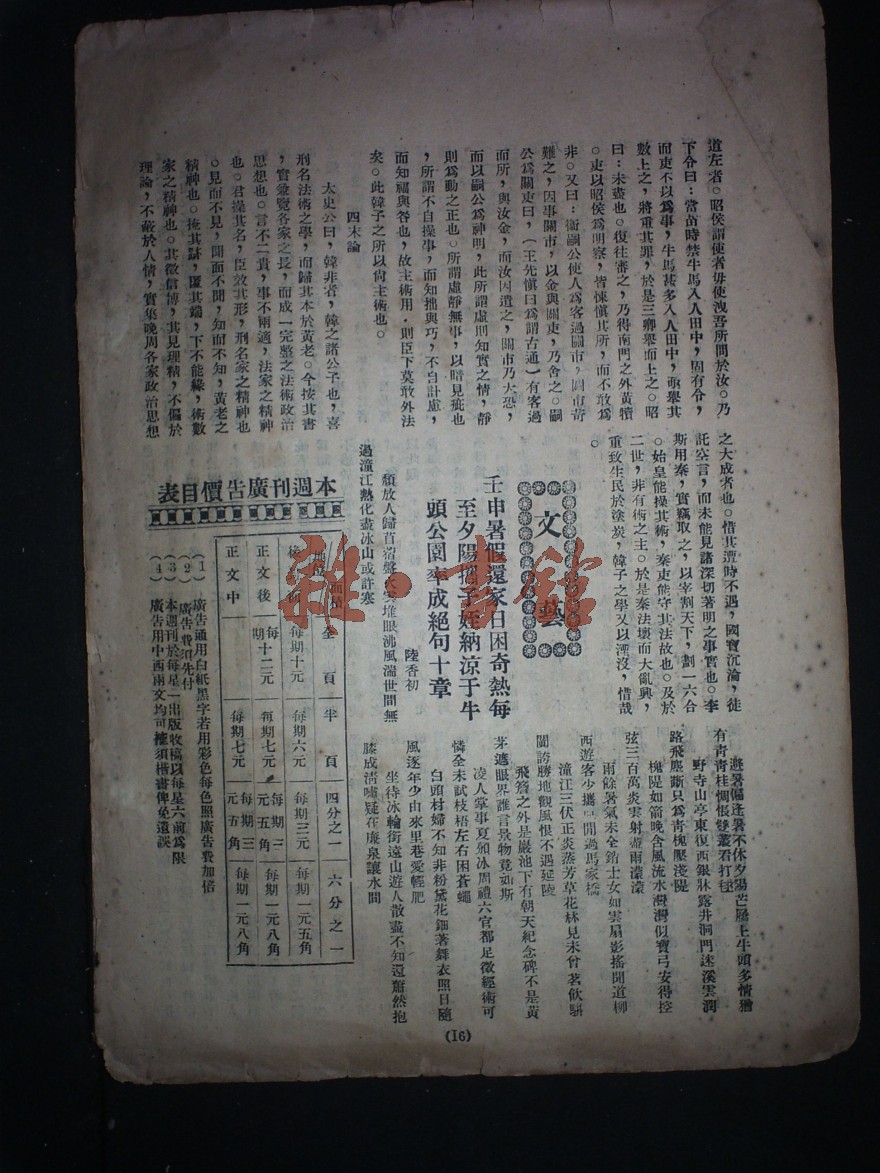 道左者。昭侯謂使者毋使洩吾所問於汝。乃
下令曰：當苗時禁牛馬入人田中，固有令，
而吏不以爲事，牛馬甚多入人田中，亟舉其
數上之，將重其罪，於是三鄉舉而上之。昭
曰：未盡也。復往審之，乃得南門之外黃犢
。吏以昭侯爲明察，皆悚愼其所，而不敢爲
非。又曰：衞嗣公使人爲客過關市，關市苛
難之，因事關市，以金與關吏，乃舍之。嗣
公爲關吏曰，（王先愼曰爲謂古通）有客過
而所，與汝金，而汝因遣之，關市乃大恐，
而以嗣公爲神明，此所謂虛則知實之情，靜
則爲動之正也。所謂虛靜無事，以暗見疵也
，所謂不自操事，而知拙與巧，不自計慮，
而知福與咎也，故主術用，則臣下莫敢外法
矣。此韓子之所以尙主術也。
四末論
太史公曰，韓非者，韓之諸公子也，喜
刑名法術之學，而歸其本於黃老。今按其書
，實彙覽各家之長，而成一完整之法術政治
思想也。言不二貴，事不兩適，法家之精神
也。君操其名，臣效其形，刑名家之精神也
。見而不見，聞而不聞，知而不知，黃老之
精神也。掩其跡，匿其端，下不能緣，術數
家之精神也。其徵信博，其見理精，不偏於
理論，不蔽於人情，實集晚周各家政治思想
之大成者也。惜其遭時不遇，國竇沉淪，徒
託空言，而未能見諸深切著明之事實也。李
斯用秦，實竊取之，以宰割天下，劃一六合
。始皇能操其術，秦吏能守其法故也。及於
二世，非有術之主。於是秦法壞而大亂興，
重致生民於塗炭，韓子之學又以湮沒，惜哉
。
文藝
壬申暑假還家日困奇熱每
至夕陽攜子姪納涼于牛
頭公園率成絕句十章
陸香初
頹放人歸苜蓿盤火雲堆眼沸風湍世間無
過潼江熱化盡冰山或許寒
避暑偏逢暑不休夕陽芒屩上牛頭多情猶
有靑靑桂惆悵雙叢君打毬
野寺山亭東復西銀牀露井洞門迷溪雲潤
路飛塵斷只爲靑槐壓淺隄
槐隄如箭晚含風流水灣灣似寶弓安得控
弦三百萬炎雲射盡雨濛濛
雨餘暑氣未全銷士女如雲扇影搖聞道柳
西遊客少攜 閒過馬家橋
潼江三伏正炎蒸芳草花林見未曾茗飮駢
闐誇勝地觀風恨不遇延陵
飛簷之外是巖池下有朝天紀念碑不是黃
茅遮眼界誰言景物竟如斯
凌人掌事夏頒冰周禮六官都足徵經術可
憐全未試枝梧左右困蒼蠅
白頭村婦不知非粉黛花鈿著舞衣照日隨
風逐年少由來里巷愛輕肥
坐待冰輪銜遠山遊人散盡不知還蕭然抱
膝成清嘯疑在廉泉讓水間
本週刊廣告價目表
全頁 半頁 四分之一 六分之一
每期十元 每期六元 每期三元 每期一元五角
正文後 每期十二元 每期七元 每期三元五角 每期一元八角
正文中 每期七元 每期三元五角 每期一元八角
（1）廣告通用白紙黑字若用彩色每色照廣告費加倍
（2）廣告費須先付
（3）本週刊於每星一出版收稿以每星六前爲限
（4）廣告用中西兩文均可惟須楷書俾免遺誤
(16)